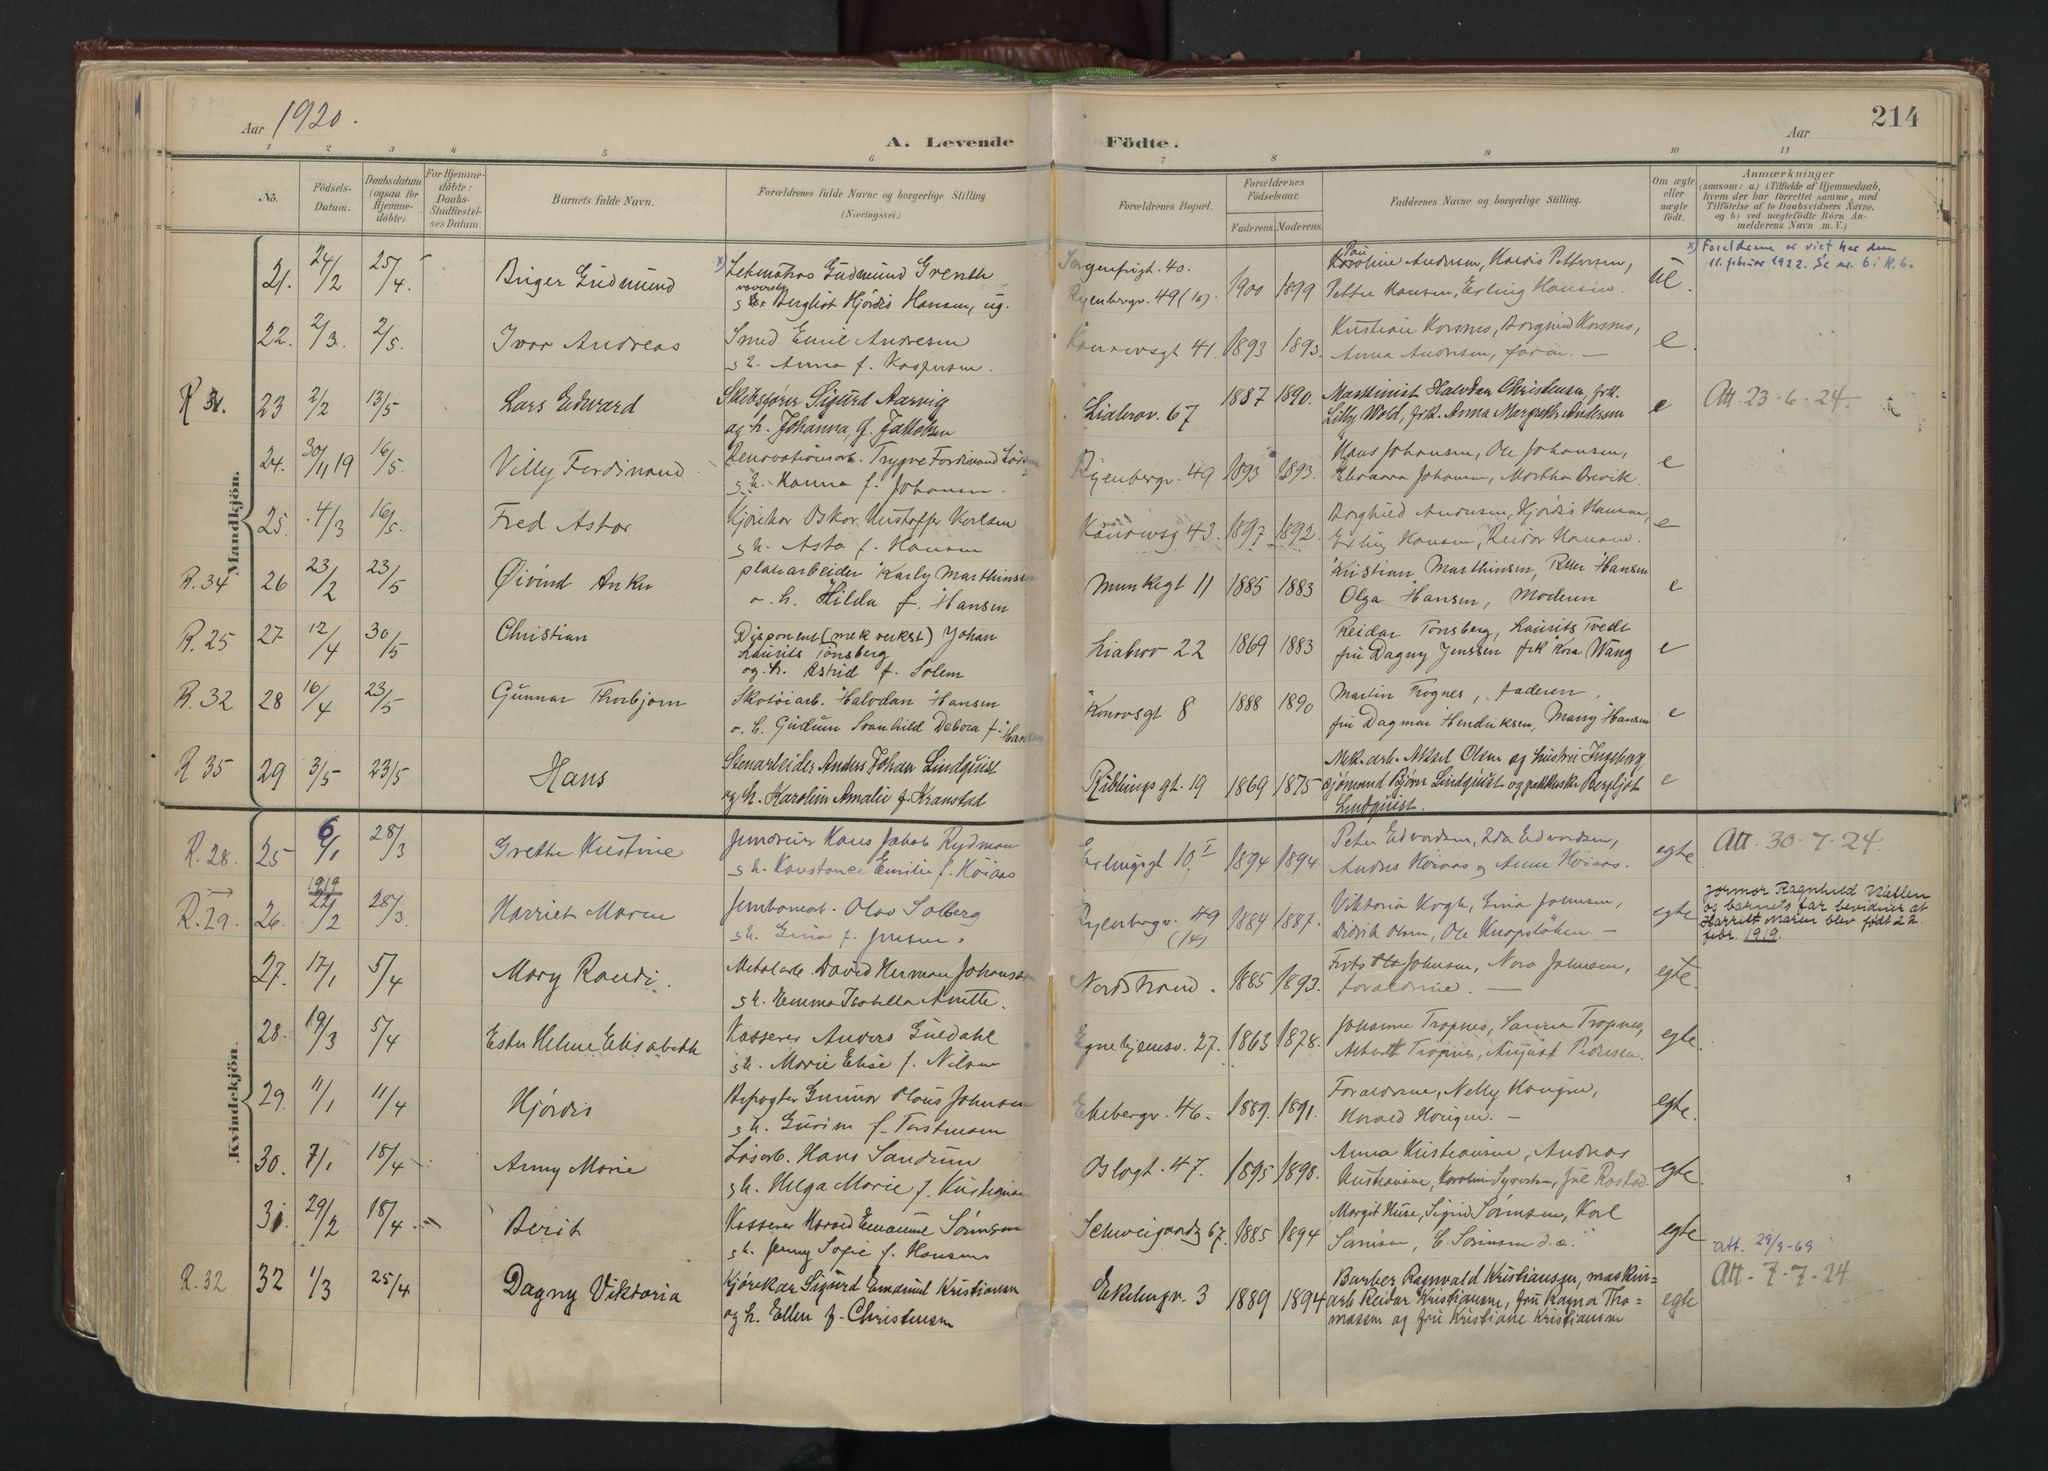 Aar 1920.
A. Levende
Födte.
Aar
214
1 2 3 4 5 6 7 8 9 10 11
No.
Födsels-
Datum.
Daabsdatum
(ogsaa for
Hjemme-
döbte).
For Hjemme-
döbte:
Daabs-
Stadfæstel-
ses Datum.
Barnets fulde Navn.
Forældrenes fulde Navne og borgerlige Stilling.
(Næringsvei.)
Forældrenes Bopæl.
Forældrenes
Födselsaar.
Faderens. Moderens.
Faddernes Navne og borgerlige Stilling.
Om ægte
eller
uægte
født.
Anmærkninger
(saasom: a) i Tilfælde af Hjemmedaab,
hvem der har forrettet samme, med
Tilföielse af to Daabsvidners Navne.
og b) ved uægtefödte Börn An-
melderens Navn m. V.)
Mandkjön.
21. 24/2 25/4. Birger Gudmund
Gudmund Grenth
Bergliot Hjördis Hansen, ug.
Sorgenfrigt. 40.
Ryenbergv. 49 (16). 1900 1899
Andersen, Hardis Pettersen,
Petter Hansen, Erling Hansen.
x) Foreldrene er viet her den
11. februar 1922. Se nr. 6 i K.b.
22. 2/3. 2/5. Ivar Andreas
Smed Emil Andresen
s h. Anna f. Kaspersen.
Konowsgt 41. 1893 1893.
Anna Andersen, faren. — e.
R 31. 23 2/2 13/5 Lars Edward
Skibsfører Sigurd Aarvig
og h. Johanna f. Jakobsen
Liabrov. 67 1887 1890.
Maskinist Halvdan Christensen, frk.
Lilly Wold, frk. Anna Margrethe Andersen
e Att. 23-6-24.
24. 30/11 19 16/5. Villy Ferdinand
Renovationsarb. Trygve Ferdinand
s h. Hanna f. Johansen.
Ryenbergv. 49 1893 1893.
Hans Johansen, Ole Johansen,
Johansen, Martha Brevik.
e
25. 4/3 16/5. Fred Astor
Kjørekar Oskar Kristoffer Karlsen
s h. Asta f. Hansen
Konowsg 43. 1897 1892.
Borghild Andersen, Hjördis Hansen,
Erling Hansen, Reidar Hansen.
e
R. 34 26 23/2 23/5 Öivind Anker
platearbeider Karly Marthinsen
o. h. Hilda f. Hansen
Munkegt 11 1885 1883
Kristian Marthinsen, Petter Hansen
Olga Hansen, Moderen
e
R. 25 27 12/4 30/5 Christian
Disponent (mek verkst) Johan
Laurits Tönsberg
og. h. Astrid f. Solem
Liabrov 22 1869 1883
Reidar Tönsberg, Laurits Tvedt
fru Dagny Jenssen frk Kora Wang
e
R. 32 28 16/4 23/5 Gunnar Thorbjørn
Skotöiarb. Halvdan Hansen
o. h. Gudrun Svanhild Debora f. Hansen
Konovsgt 8 1888 1890
Martin Trognes, faderen,
fru Dagmar Hendriksen, Marry Hansen
e
R 35 29 3/5 23/5 Hans
Stenarbeider Anders Johan Lindquist
og h. Karolin Amalie f. Kranstad
Kiblings gt. 19 1869 1875
Mek. arb. Aksel Olsen og hustru Ingeborg,
sjömand Björn Lindquist og pakkerske Bergljot
Lindquist.
e
Kvindekjön.
R. 28. 25 6/1 28/3 Grethe Kristine
Hans Jakob Rydman
s h. Konstance Emilie f. Höiaas
Erlingsgt 10 I 1894 1894
Peter Edvardsen, Ida Edvardsen,
Anders Höiaas og Anne Höiaas.
egte Att. 30-7-24.
R. 29. 26. 1919 22/2 28/3. Harriet Maren
Jernbanearb. Olav Solberg
s h. Gina f. Jensen.
Ryenbergv. 49
(14) 1884 1887.
Viktoria Hogh, Gina Johnsen,
Didrik Olsen, Ole —
egte
Jormor Ragnhild
og barnets far bevidner at
Harriet Maren blev født 22
febr. 1919.
27. 17/1 5/4 Mary Randi.
Metalarb. David Herman Johansen
s h. Emma Isabella Anette.
Nordstrand. 1885 1893.
Frits Johnsen, Nora Johnsen,
foraldrene. —
egte
28. 19/3 5/4 Ester Helene Elisabeth
Kasserer Anders Guldahl
s h. Marie Elise f. Nilsen
Egnehjemsv. 27. 1863 1878.
Johanne Tropnes, Sanna Tropnes,
Tropnes, August Pedersen.
egte.
29. 11/1 11/4 Hjördis
Gunnar Olaus Johnsen
s h. Gurine f. Torstensen
Ekebergv. 46. 1889. 1891.
Foraldrene, Nelly Haugen,
Harald Haugen. —
egte.
30. 7/1 18/4 Anny Marie
Hans Sandum
s h. Helga Marie f. Kristiansen
Oslogt. 47. 1895 1898.
Anna Kristiansen, Andreas
Kristiansen, Karoline Syvertsen,
egte.
31. 29/2 18/4 Berit
Kasserer Harald Emanuel Sörensen
s h. Jenny Sofie f. Hansen
Schweigaardsg 67. 1885 1894
Margit Huse, Sigrid Sörensen, Karl
Sörensen, C. Sörensen d.e.
egte
att. 29/9-69
R. 32 32 1/3 25/4 Dagny Viktoria
Kjørekar Sigurd Emanuel Kristiansen
og h. Ellen f. Christensen
Ekebergv. 3 1889 1894
Barber Ragnvald Kristiansen, maskin=
arb Reidar Kristiansen, fru Ragna Tho=
massen og fru Kristiane Kristiansen
egte
Att. 7-7-24.